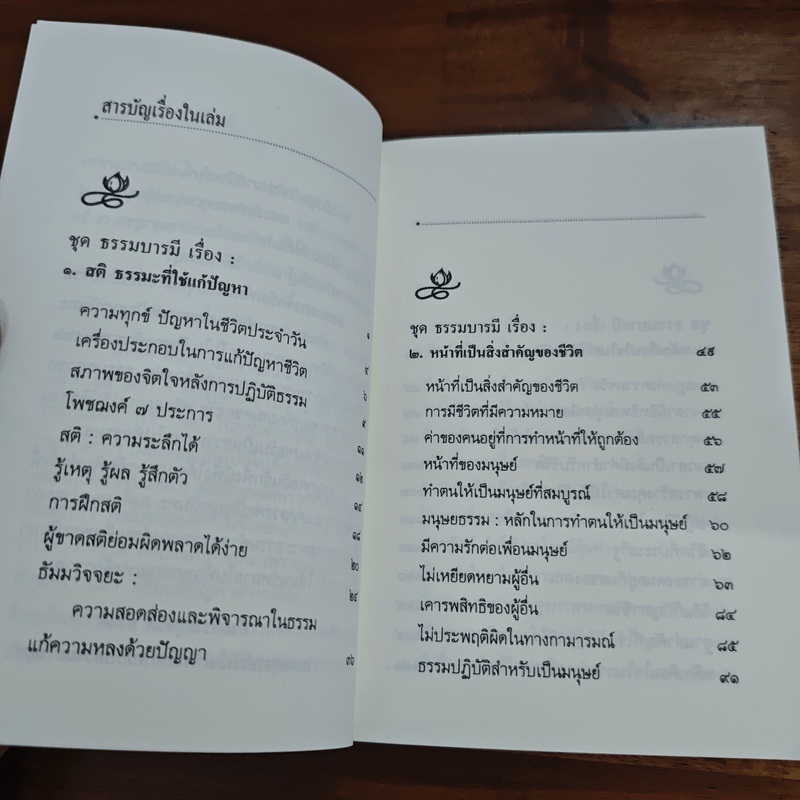 สารบัญเรื่องในเล่ม
ชุด ธรรมบารมี เรื่อง :
๑. สติ ธรรมะที่ใช้แก้ปัญหา
ความทุกข์ ปัญหาในชีวิตประจำวัน ๑
เครื่องประกอบในการแก้ปัญหาชีวิต
สภาพของจิตใจหลังการปฏิบัติธรรม ๖
โพชฌงค์ ๗ ประการ
สติ : ความระลึกได้ ๑๑
รู้เหตุ รู้ผล รู้สึกตัว ๑๒
การฝึกสติ ๑๔
ผู้ขาดสติย่อมผิดพลาดได้ง่าย ๑๘
ธัมมวิจจยะ : ๒๐
ความสอดส่องและพิจารณาในธรรม ๒๔
แก้ความหลงด้วยปัญญา ๓๖
ชุด ธรรมบารมี เรื่อง :
๒. หน้าที่เป็นสิ่งสำคัญของชีวิต ๔๙
หน้าที่เป็นสิ่งสำคัญของชีวิต ๕๓
การมีชีวิตที่มีความหมาย ๕๕
ค่าของคนอยู่ที่การทำหน้าที่ให้ถูกต้อง ๕๖
หน้าที่ของมนุษย์ ๕๗
ทำตนให้เป็นมนุษย์ที่สมบูรณ์ ๕๘
มนุษยธรรม : หลักในการทำตนให้เป็นมนุษย์ ๖๐
มีความรักต่อเพื่อนมนุษย์ ๖๒
ไม่เหยียดหยามผู้อื่น ๖๓
เคารพสิทธิของผู้อื่น ๘๔
ไม่ประพฤติผิดในทางกามารมณ์ ๘๕
ธรรมปฏิบัติสำหรับเป็นมนุษย์ ๙๑